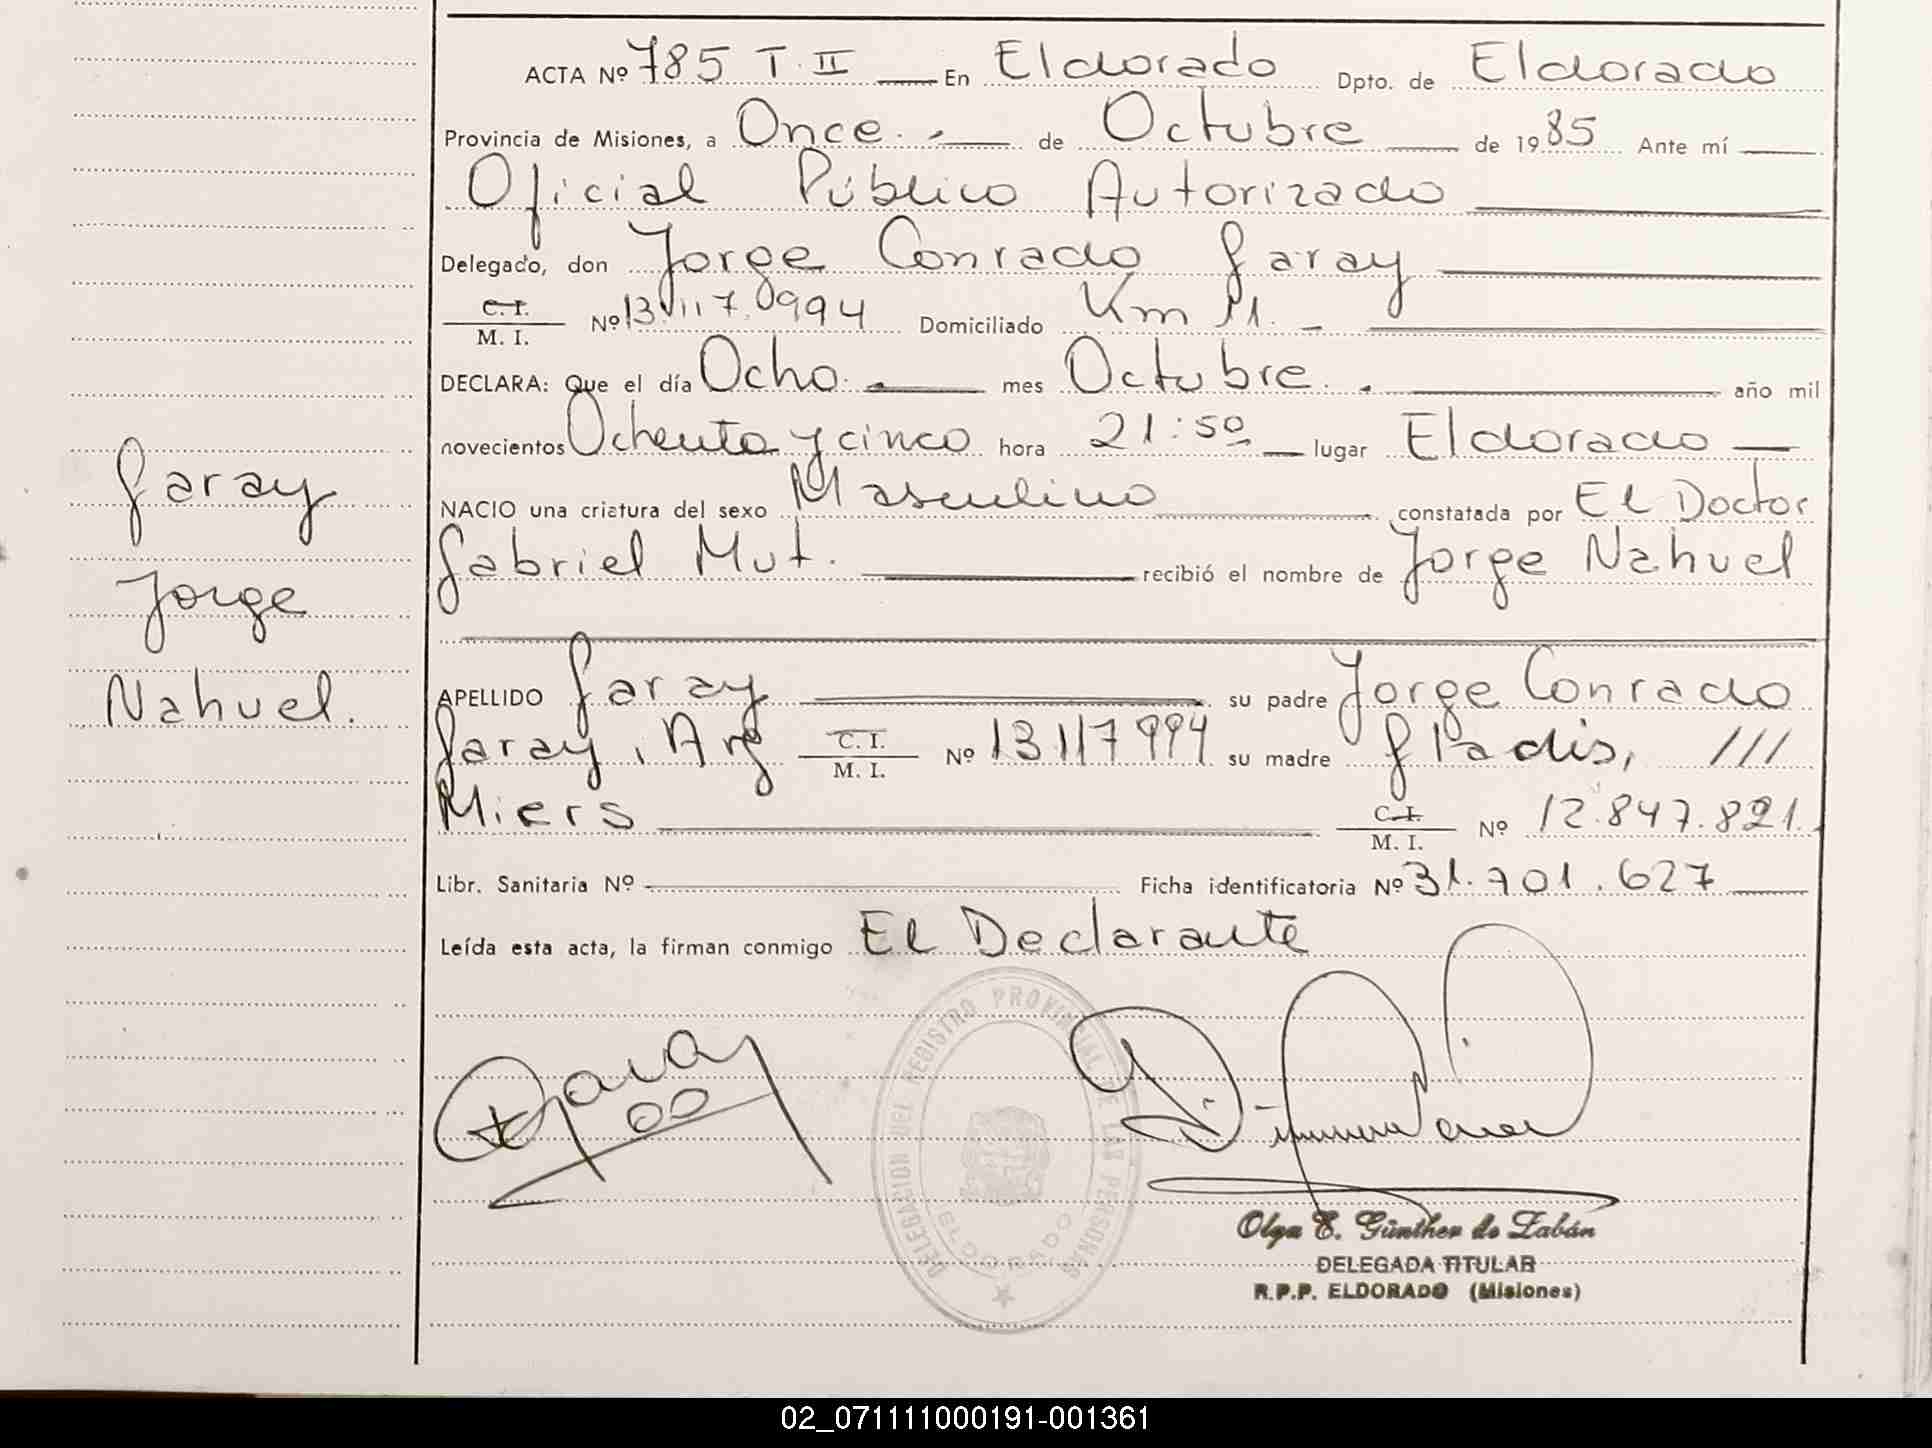 ACTA Nº 785 T. II — En Eldorado Dpto. de Eldorado
Provincia de Misiones, a Once.- de Octubre de 1985 Ante mí
Oficial Público Autorizado
Delegado, don Jorge Conrado Garay
C. I. M. I. Nº 13.117.994 Domiciliado Km 11.
DECLARA: Que el día Ocho. mes Octubre. año mil
novecientos Ochenta y cinco hora 21:50 lugar Eldorado
NACIO una criatura del sexo Masculino constatada por El Doctor
Gabriel Mut. recibió el nombre de Jorge Nahuel
Garay
Jorge
Nahuel.
APELLIDO Garay su padre Jorge Conrado
Garay, Arg C. I. M. I. Nº 13117994 su madre Gladis, ///
Miers C. I. M. I. Nº 12.847.821.
Libr. Sanitaria Nº Ficha identificatoria Nº 31.701.627
Leída esta acta, la firman conmigo El Declarante
Garay
DELEGACION DEL REGISTRO PROVINCIAL DE LAS PERSONAS
ELDORADO
Olga E. Günther de Zabán
DELEGADA TITULAR
R.P.P. ELDORADO (Misiones)
02_071111000191-001361